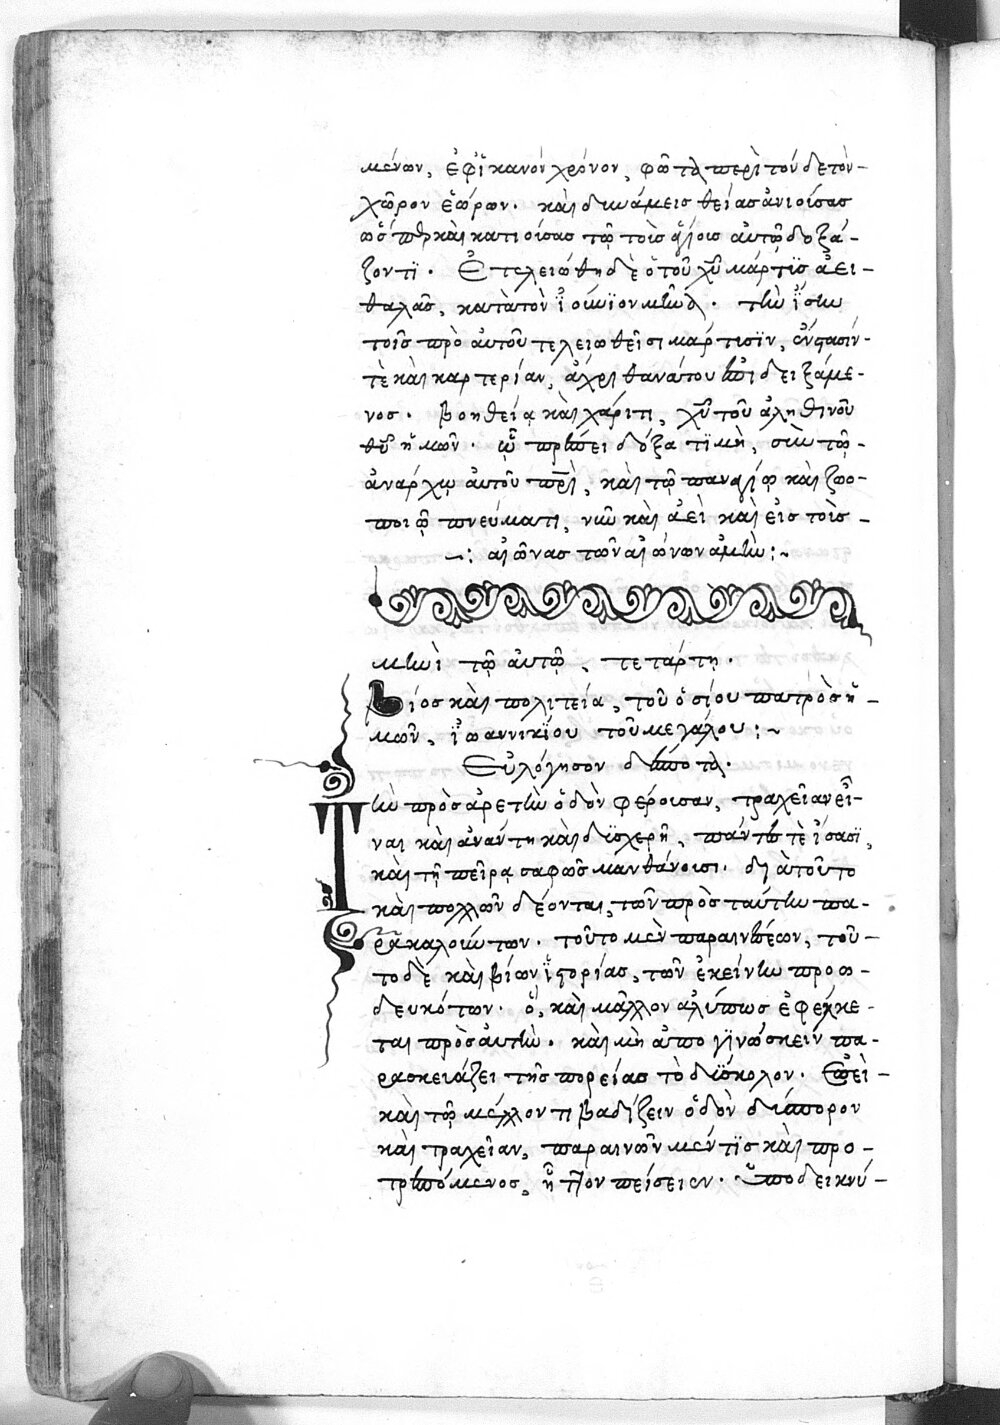 μένων, ἐφ ἱκανὸν χρόνον, φῶτα περὶ τόνδε τὸν
χῶρον ἑώρων. καὶ δυνάμεις θείας ἀνιούσας
ὥσπερ καὶ κατιούσας τῷ τοῖς ἁγίοις αὐτοῦ δοξά-
ζοντι. Ἐτελειώθη δὲ ὁ τοῦ χυ μάρτϊς ἀει-
θαλᾶς, κατὰ τὸν ἰούνϊον μῆνα. τὴν ἴσην
τοῖς πρὸ αὐτοῦ τελειωθεῖσι μάρτυσϊν, ἔνστασίν-
τε καὶ καρτερίαν, ἄχρι θανάτου ἐπιδειξάμε-
νος. βοηθείᾳ καὶ χάριτι, χυ τοῦ ἀληθινοῦ
θυ ἡμῶν. ᾧ πρέπει δόξα τϊμὴ, σὺν τῷ-
ἀνάρχῳ αὐτοῦ πρὶ, καὶ τῷ παναγίῳ καὶ ζωο-
ποιῷ πνεύματι, νῦν καὶ ἀεὶ καὶ εἰς τοὺς-
~: αἰῶνας τῶν αἰώνων ἀμήν:~
μηνὶ τῷ αὐτῷ, τετάρτη.
Βίος καὶ πολιτεία, τοῦ ὁσίου πατρὸς ἡ-
μῶν, ἰωαννικίου τοῦ μεγάλου:~
Εὐλόγησον δέσποτα.
Τὴν πρὸς ἀρετὴν ὁδὸν φέρουσαν, τραχεῖαν εἶ-
ναι καὶ ἀνάντη καὶ δϊσχερῆ, πάντες τὲ ἴσασϊ,
καὶ τῇ πείρᾳ σαφῶς μανθάνουσι. διὰ τοῦτο
καὶ πολλῶν δέονται, τῶν πρὸς ταύτην πα-
ρακαλούντων. τοῦτο μὲν παραινέσεων, τοῦ-
το δὲ καὶ βίων ἱστορίας, τῶν ἐκείνην προω-
δευκότων. ὃ, καὶ μᾶλλον ἀλύπως ἐφέλκε-
ται πρὸς αὐτὴν. καὶ μὴ ἀπογϊνώσκειν πα-
ρασκευάζει τῆς πορείας τὸ δύσκολον. Ἐπεὶ-
καὶ τῷ μέλλοντι βαδίζειν ὁδὸν δύσπορον
καὶ τραχεῖαν, παραινῶν μέν τϊς καὶ προ-
τρεπόμενος, ἧττον πείσειεν. Ὑποδεικνύ-